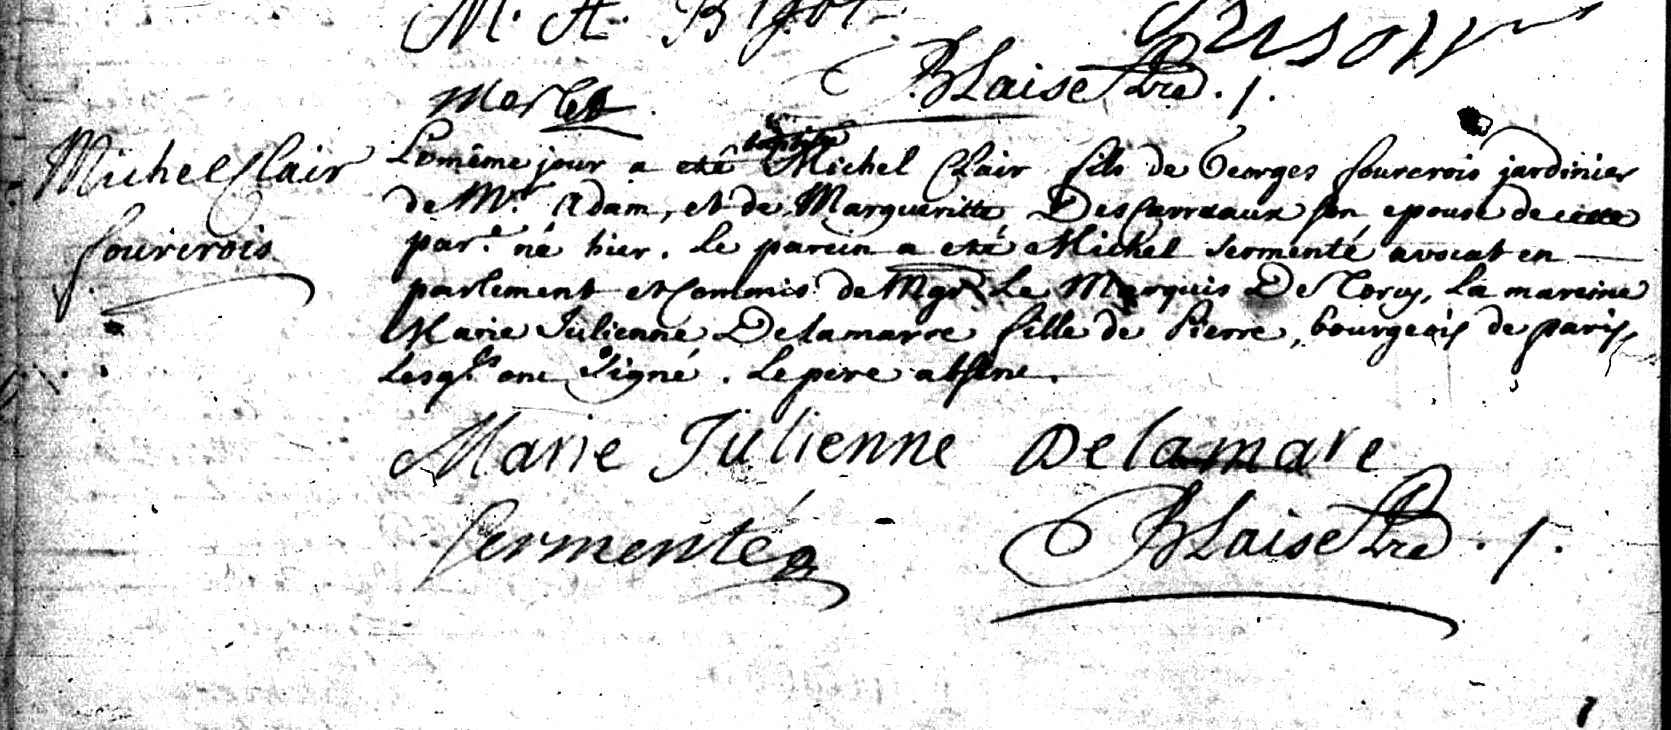 M. A. Bigot
Merlet
Blaise Pre. 1.
Michel Clair
fourcrois
Le même jour a eté baptisé Michel Clair fils de Georges fourcrois jardinier
de Mr. Adam, et de Margueritte Descarreaux son epouse de cette
par.e né hier. Le parein a eté Michel Sermenté avocat en
parlement et Commis de Mgr Le Marquis De Torcy, La mareine
Marie Julienne Delamarre fille de Pierre, bourgeois de paris,
Lesqls ont signé. Le pere absent.
Marie Julienne Delamare
Sermenté
Blaise Pre. 1.